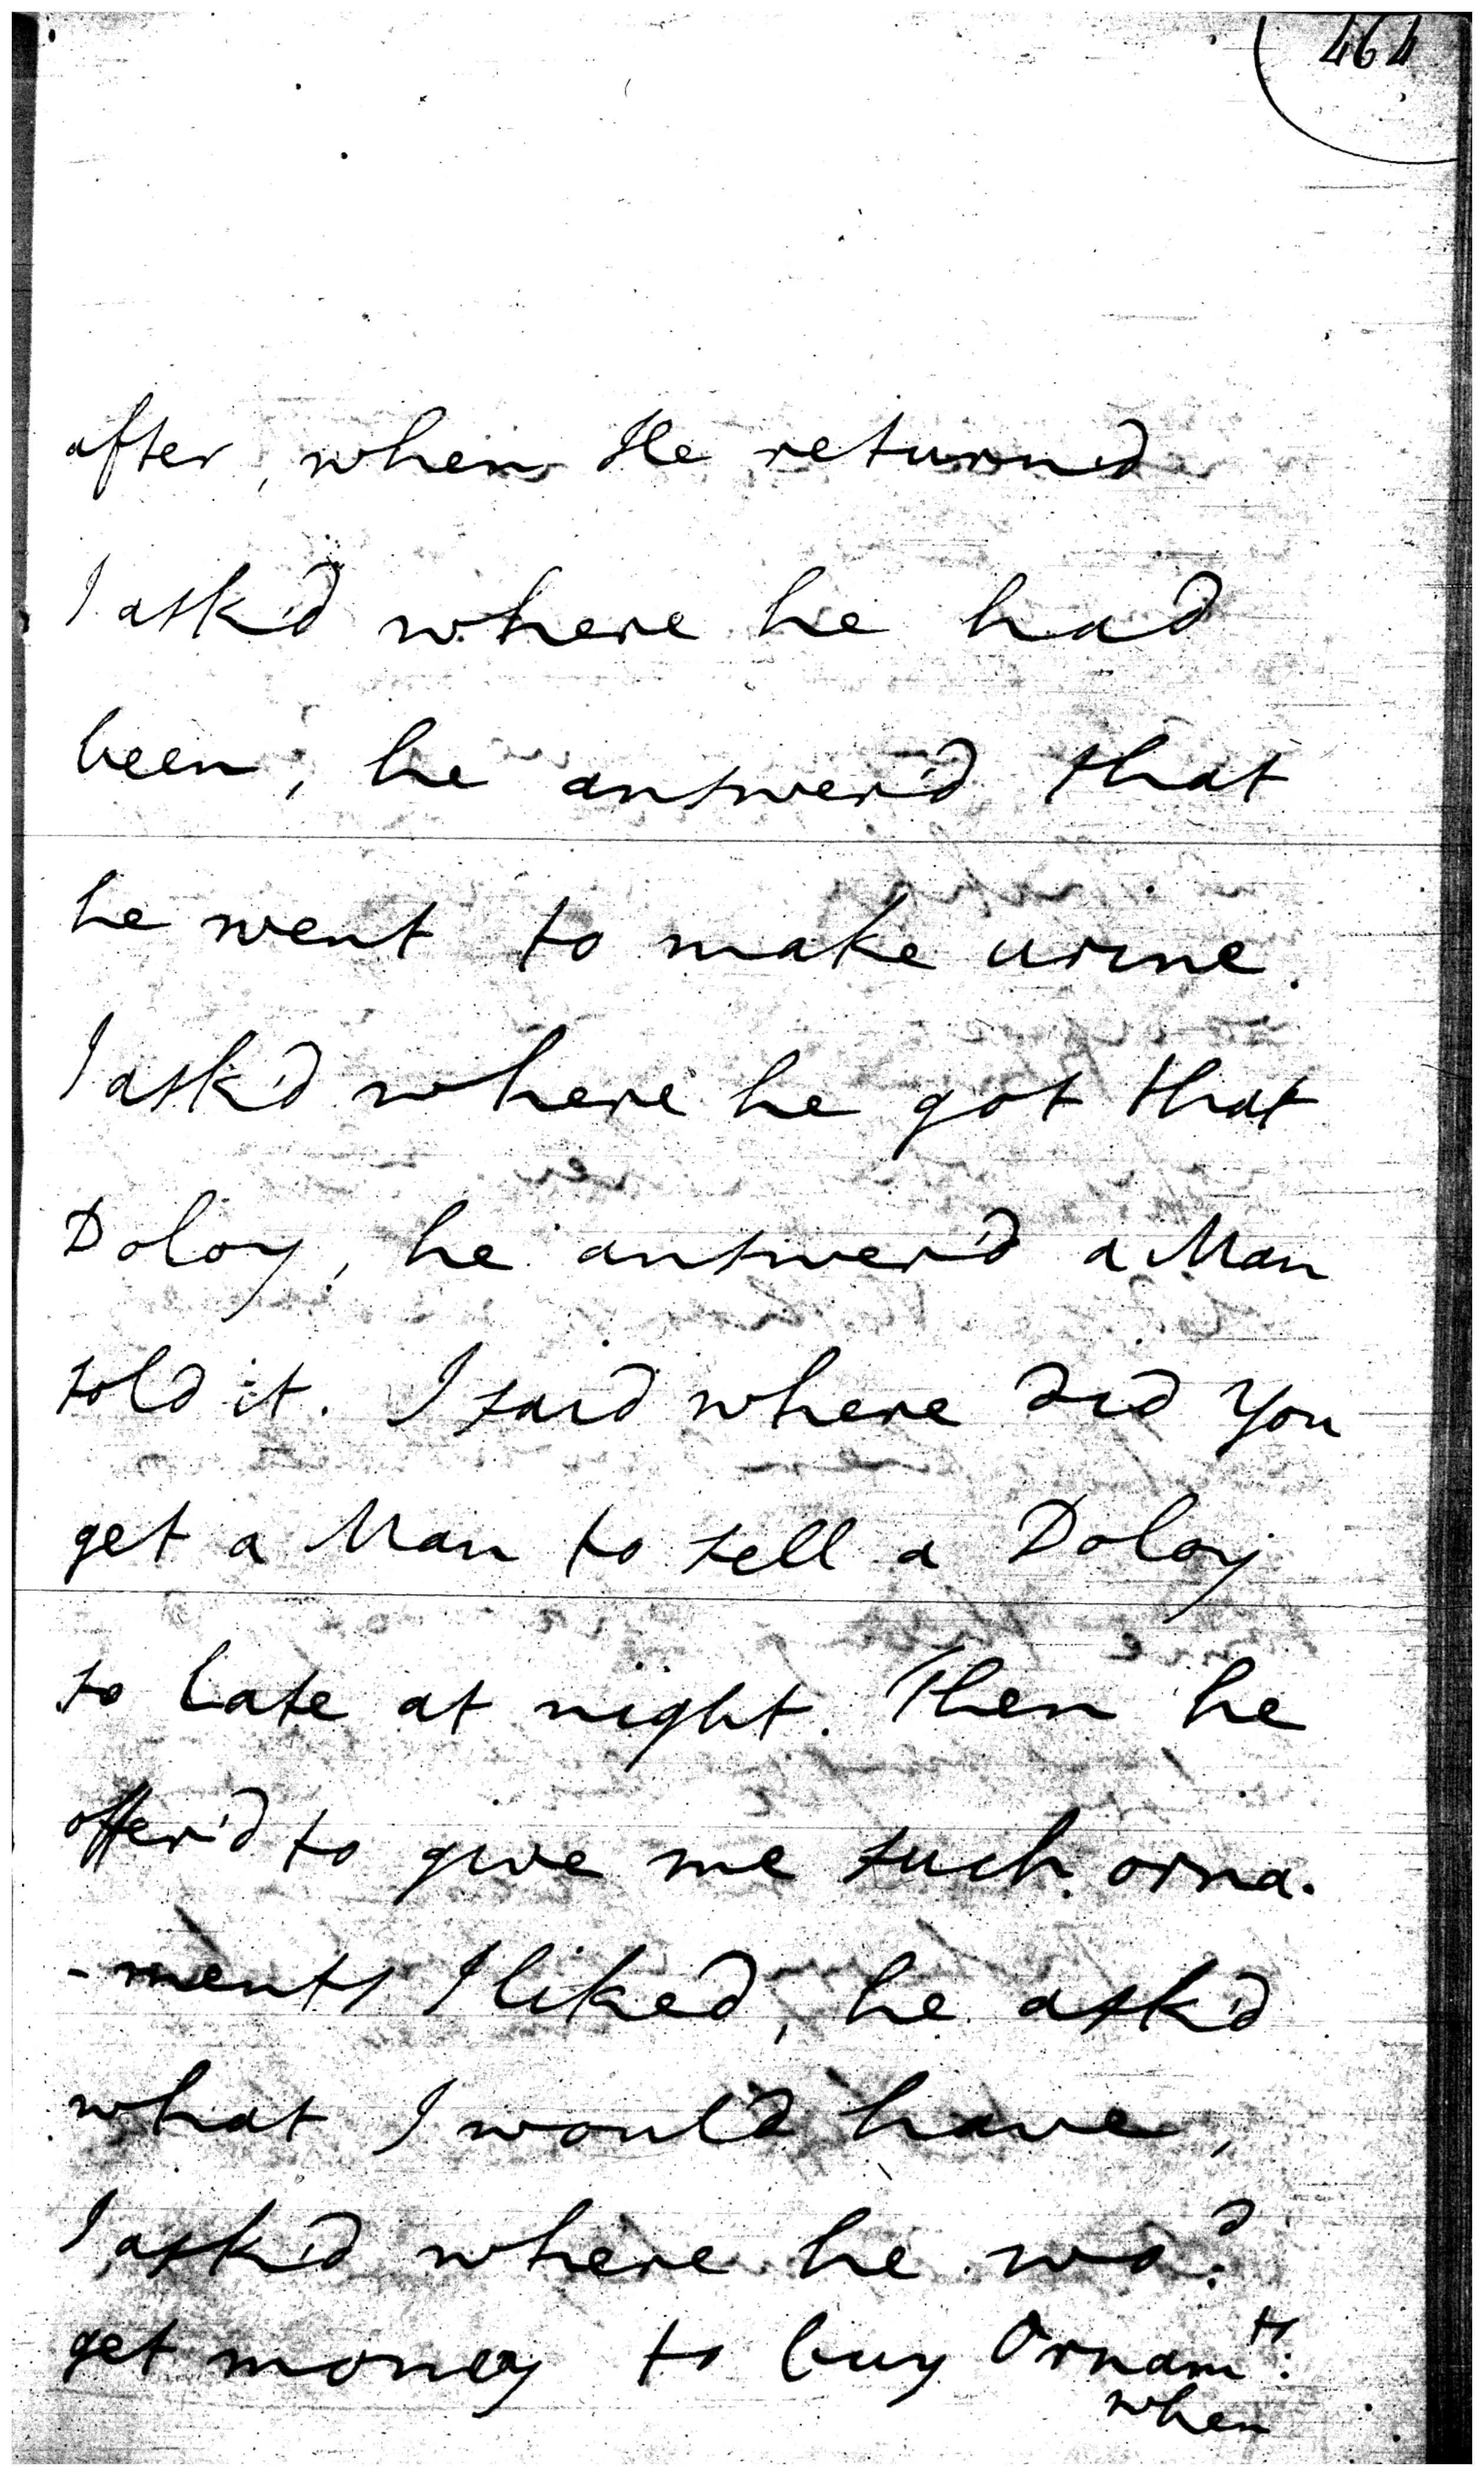 464
after, when He return'd
I ask'd where he had
been, he answer'd that
he went to make urine.
I ask'd where he got that
Doloy, he answer'd a Man
sold it. I said where did you
get a Man to sell a Doloy
so late at night. Then he
offer'd to give me such orna-
-ments I liked, he ask'd
what I would have,
I ask'd where he wod:
get money to buy Ornamts:
when